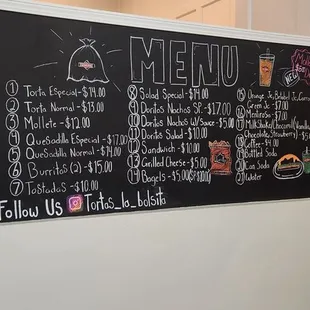 MENU
1 Torta Especial - $14.00
2 Torta Normal - $13.00
3 Mollete - $12.00
4 QueSadilla Especial - $17.00
5 QueSadilla Normal - $14.00
6 Burritos (2) - $15.00
7 Tostadas - $10.00
8 Salad Special - $14.00
9 Doritos Nachos SP. - $17.00
10 Doritos Nachos W/Sauce - $5.00
11 Doritos Salad - $10.00
12 Sandwich - $10.00
13 Grilled Cheese - $5.00
14 Bagels - $5.00
15 Orange Jc,
Green Jc - $7.00
$7.00
Chocolate, Strawberry) - $5.00
Coffee - $4.00
Bottled Soda
Can Soda
21 Water
NEW
Follow Us Tortas_la_bolsita